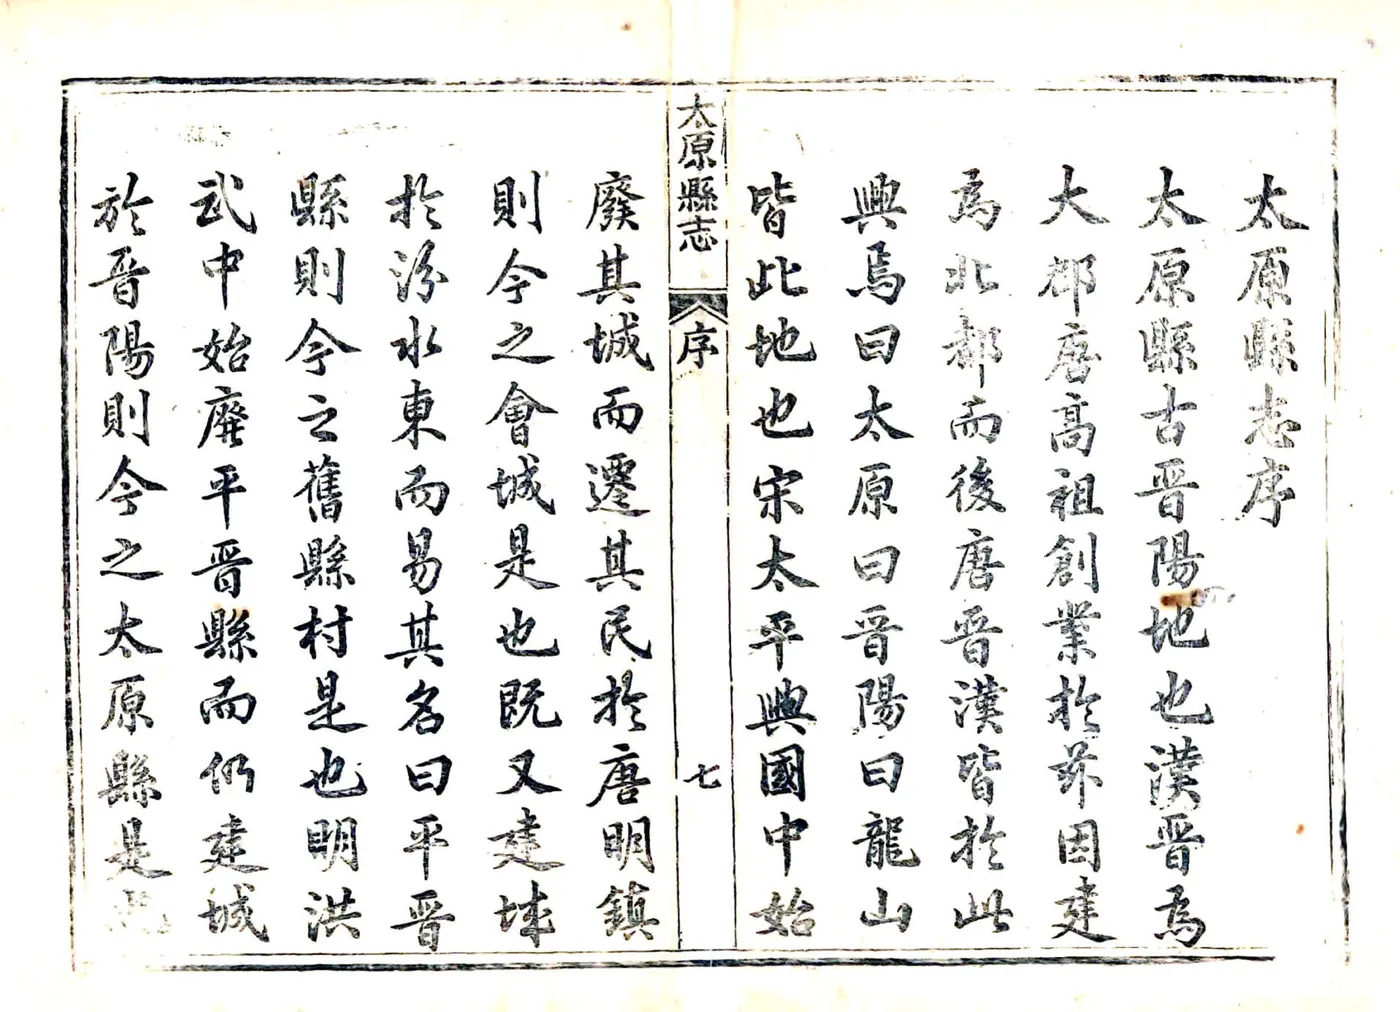 太原縣志序
太原縣古晉陽地也漢晉為
大郡唐高祖創業於茲因建
為北都而後唐晉漢皆於此
興焉曰太原曰晉陽曰龍山
皆此地也宋太平興國中始
太原縣志
序
七
廢其城而遷其民於唐明鎮
則今之會城是也既又建城
於汾水東而易其名曰平晉
縣則今之舊縣村是也明洪
武中始廢平晉縣而仍建城
於晉陽則今之太原縣是